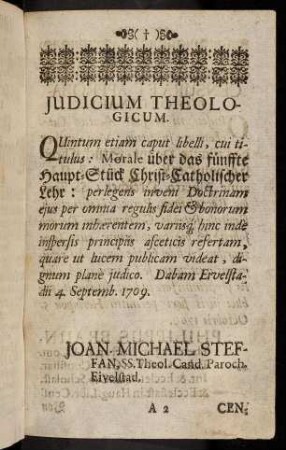 ( † )
JUDICIUM THEOLO-
GICUM.
QUintum etiam caput libelli, cui ti-
tulus: Morale über das fünffte
Haupt-Stück Christ-Catholischer
Lehr: perlegens inveni Doctrinam
ejus per omnia regulis fidei & bonorum
morum inhærentem, variisq́; hinc inde
inspersis principiis asceticis refertam,
quare ut lucem publicam videat, di-
gnum planè judico. Dabam Eivelsta-
dii 4. Septemb. 1709.
JOAN. MICHAEL STEF-
FAN, SS. Theol. Cand. Paroch.
Eivelstad.
A 2 CEN-